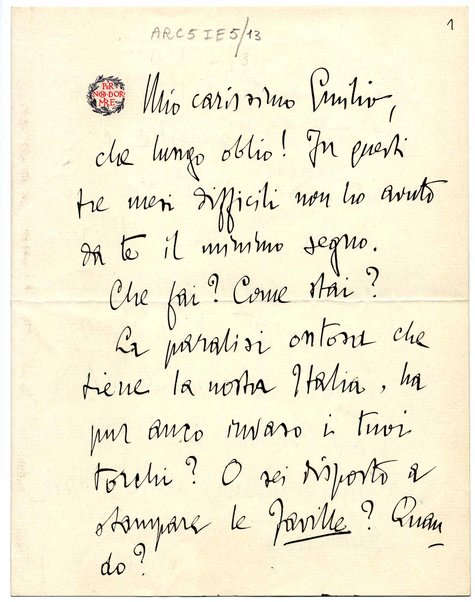 1
ARC5 IE5/13
3
PER
NON DOR
MIRE
Mio carissimo Emilio,
che lungo oblio! In questi
tre mesi difficili non ho avuto
da te il minimo segno.
Che fai? Come stai?
La paralisi ontosa che
tiene la nostra Italia, ha
pur anco invaso i tuoi
torchi? O sei disposto a
stampare le Faville? Quan
do?